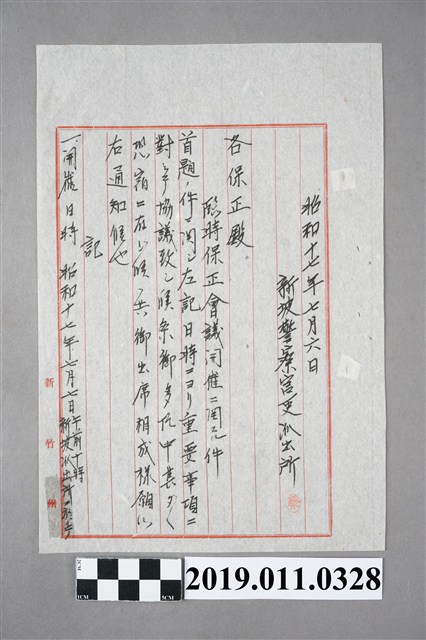 昭和十七年七月六日
新坡警察官吏派出所
各保正殿
臨時保正會議開催ニ関スル件
首題ノ件ニ関シ左記日時ニヨリ重要事項ニ
對シ協議致シ候条御多忙中甚ダ
恐縮ニ存シ候ヘ共御出席相成様願
右通知候也
記
一、開催日時 昭和十七年七月七日午前十時
新坡派出所ニ於テ
新竹州
2019.011.0328
1CM
5CM